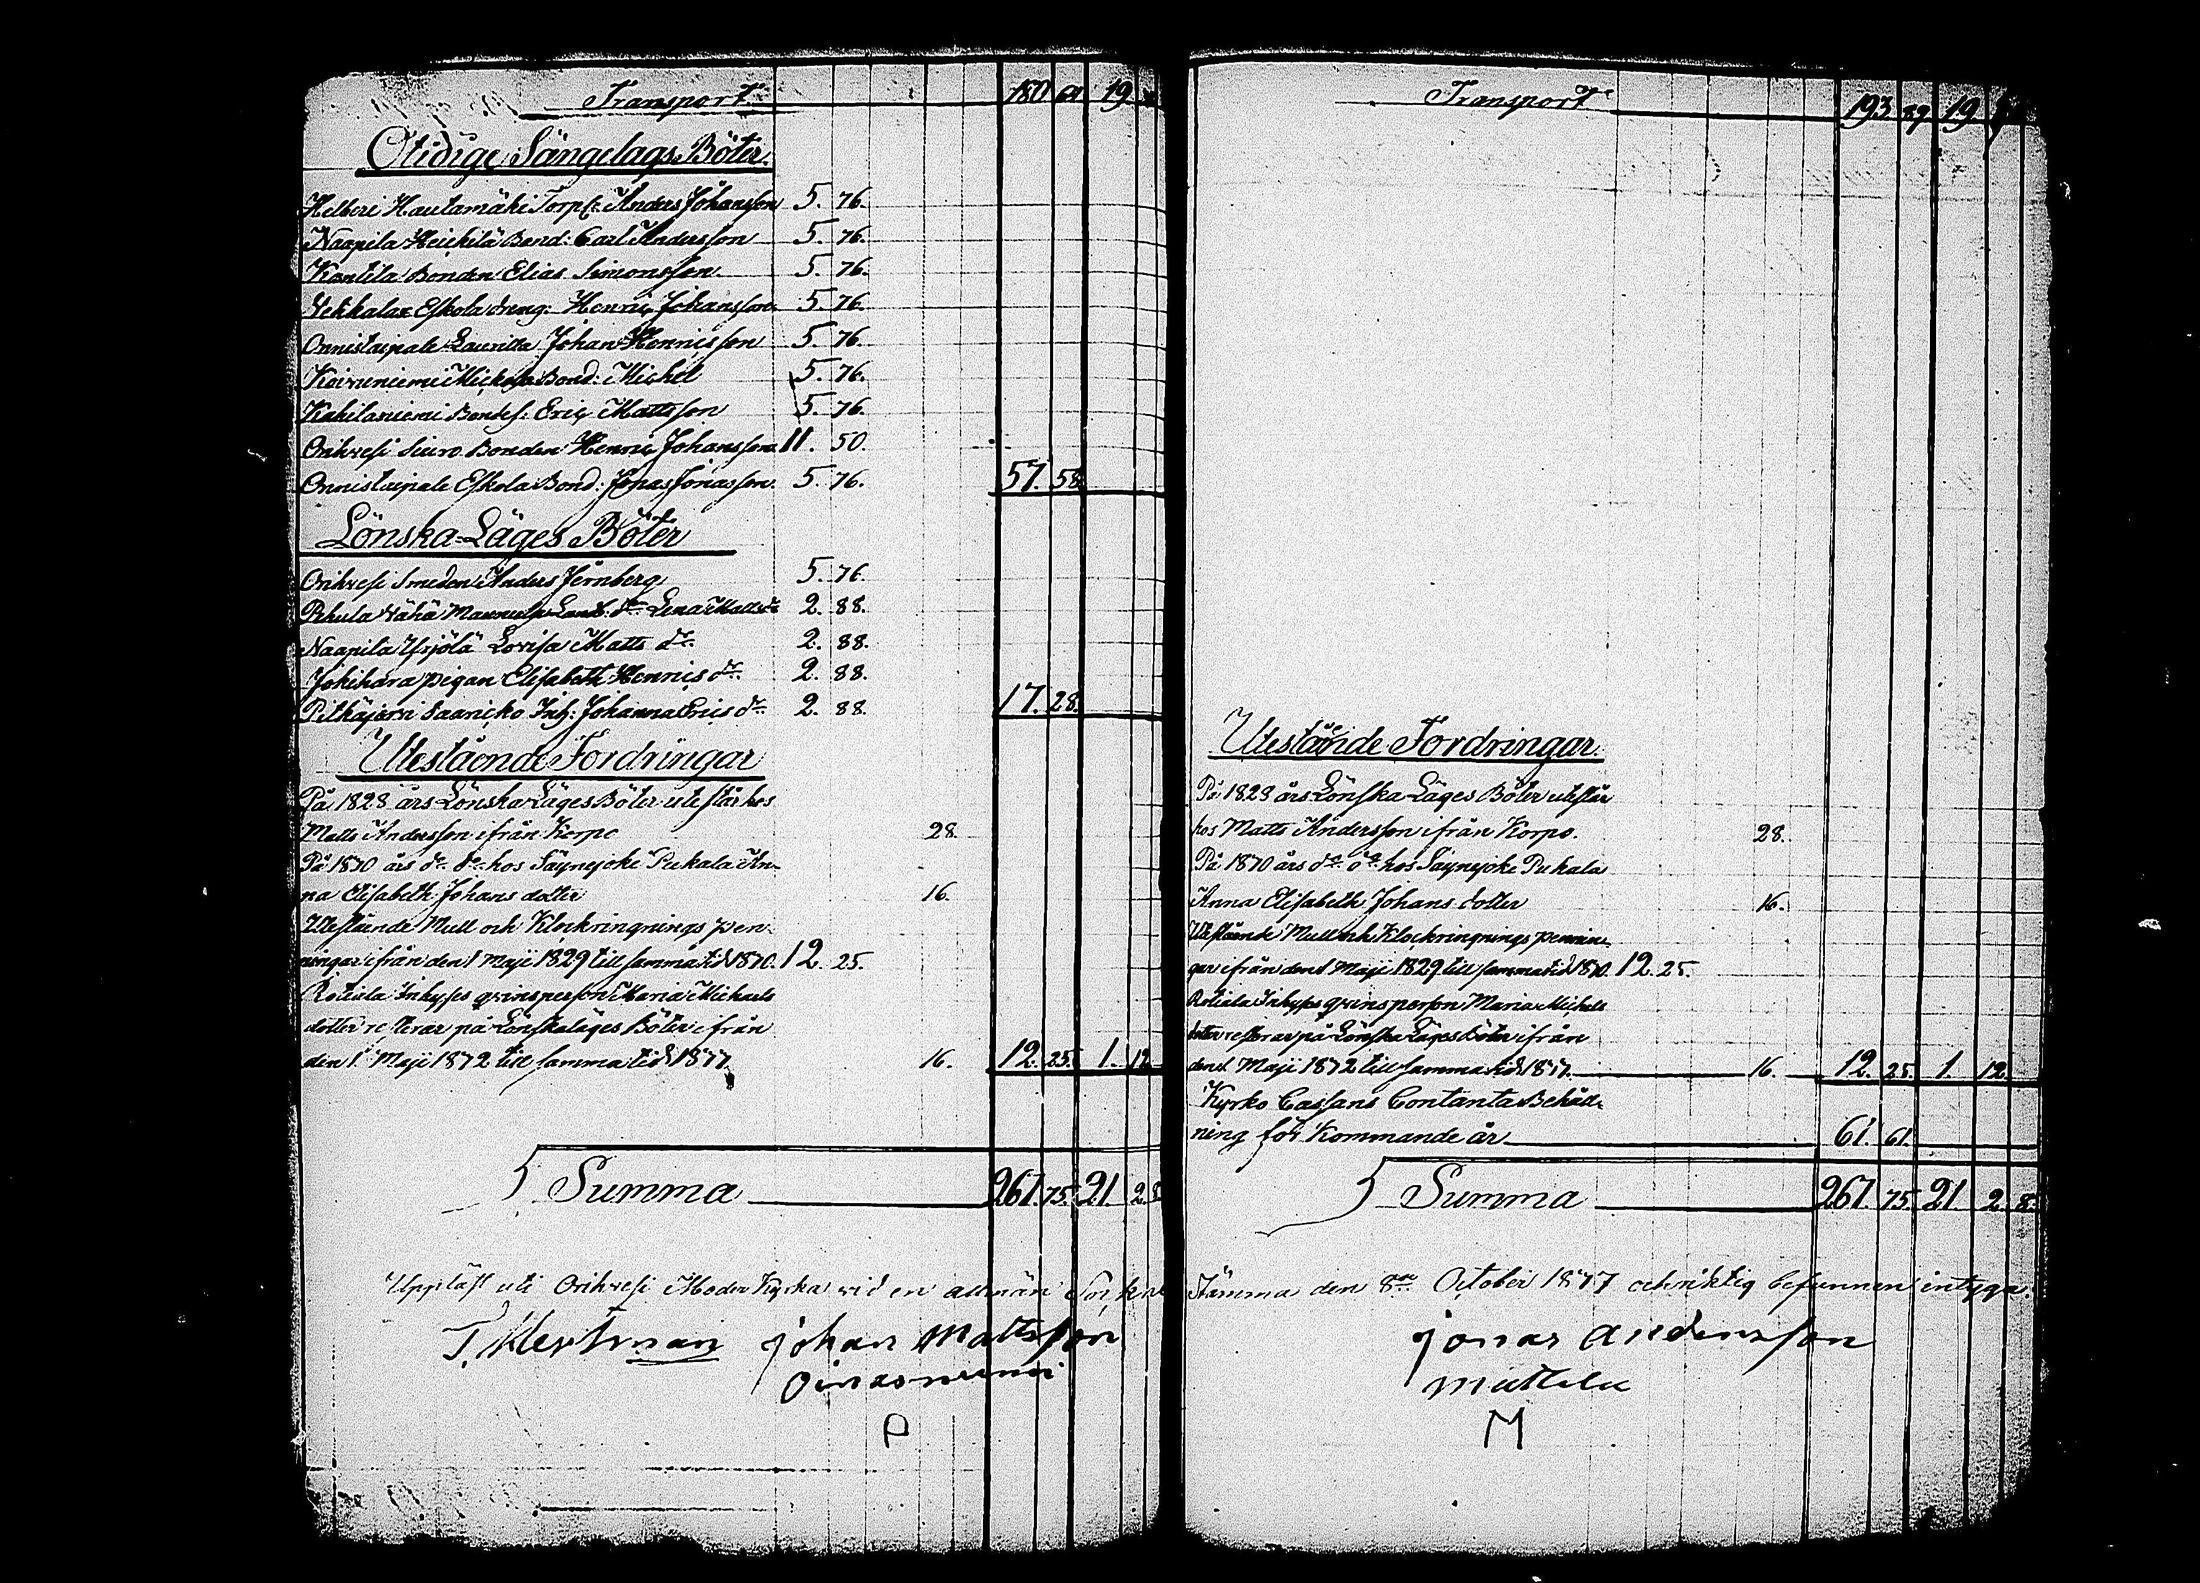 Transport 180. 64 19
Otidige Sängelags Böter.
Helberi Hautamäki Torp: Anders Johansson 5. 76.
Naapila Heickilä Bond: Carl Andersson 5. 76.
Kantila Bonden Elias Simonsson 5. 76.
Eskola dreng: Henric Johansson 5. 76.
Onnistaipale Laurilla Johan Henricsson 5. 76.
Koivuniemi Mickola Bond: Michel 5. 76.
Kahilaniemi Bondes: Eric Mattsson 5. 76.
Orihvesi Siuro Bonden Henric Johansson 11. 50.
Onnistaipale Eskola Bond: Jonas Jonasson 5. 76. 57. 58.
Lönska-Läges Böter
Orihvesi Smeden Anders Jernberg 5. 76.
Pehula Vähä Mannula Lena Matts dr 2. 88.
Naapila Yrjölä Lovisa Matts dr 2. 88.
Jokihara pigan Elisabeth Henrics dr 2. 88.
Pitkäjervi Saaricko Inh: Johanna Erics dr 2. 88. 17. 28.
Utestående Fordringar
På 1828 års Lönska Läges Böter utestår hos
Matts Andersson ifrån Korpo 28.
På 1870 års do do hos Säynejoki Pukala An-
na Elisabeth Johans dotter 16.
Utestående Mull och Klockringnings pen-
ningar ifrån den 1 Maji 1829 till samma tid 1870. 12. 25.
Rotiala Inhyses qvinsperson Maria Michels
dotter resterar på Lönskaläges Böter ifrån
den 1 Maji 1872 till samma tid 1877 16. 12. 25. 1. 12
Summa 267. 75. 21. 2. 8
Uppläst uti Orihvesi Moder Kyrka vid en allmän Sockne
T. Westman Johan Mattsson
Oinasniemi
P
Transport 193 89 19
Utestående Fordringar.
På 1828 års Lönska Läges Böter utestår
hos Matts Andersson ifrån Korpo. 28.
På 1870 års do do hos Säynejoki Pukala
Anna Elisabeth Johans dotter 16.
Utestående Mull och Klockringnings pennin-
gar ifrån den 1 Maji 1829 till samma tid 1870. 12. 25.
Rotiala Inhyses qvinsperson Maria Michels
dotter resterar på Lönska Läges Böter ifrån
den 1 Maji 1872 till samma tid 1877. 16. 12. 25. 1. 12.
Kyrko Cassans Contanta Behåll-
ning för Kommande år 61. 61.
Summa 267. 75. 21. 2. 8.
Stämma den 8de October 1877 och riktig befunnen intyga.
Jonas Andersson
Mattila
M